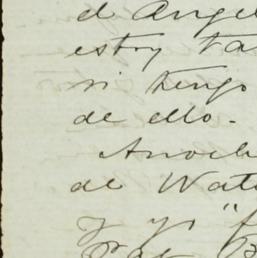 el Angel
estoy ta
ni tengo
de ello.
Anoch
de Wat
y yo "f